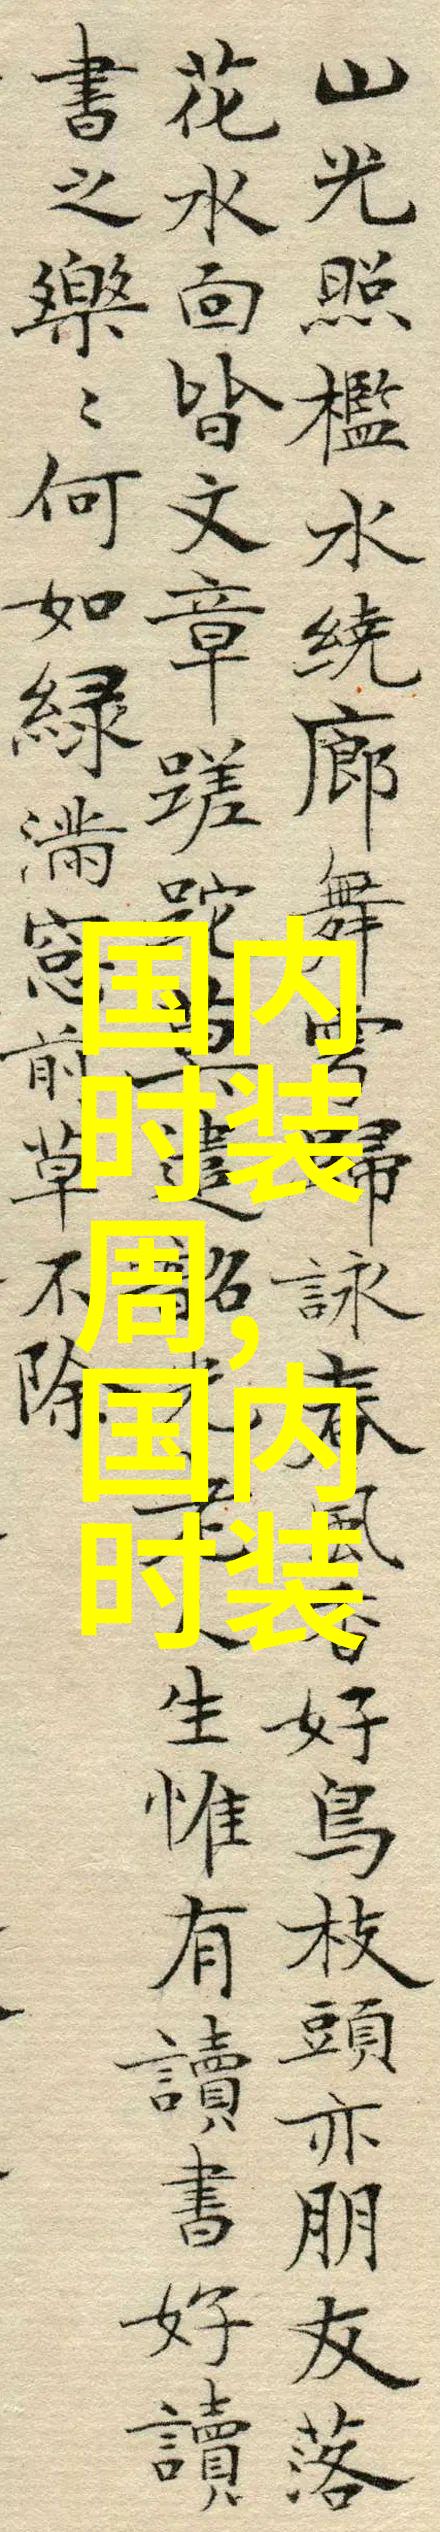 山光照檻水绕廊舞雩歸詠春風香好鳥枝頭亦朋友落
花水面皆文章蹉跎莫遣韶光老人生惟有讀書好讀
書之樂〻何如綠滿窓前草不除
国内
时装
周,
国内
时装